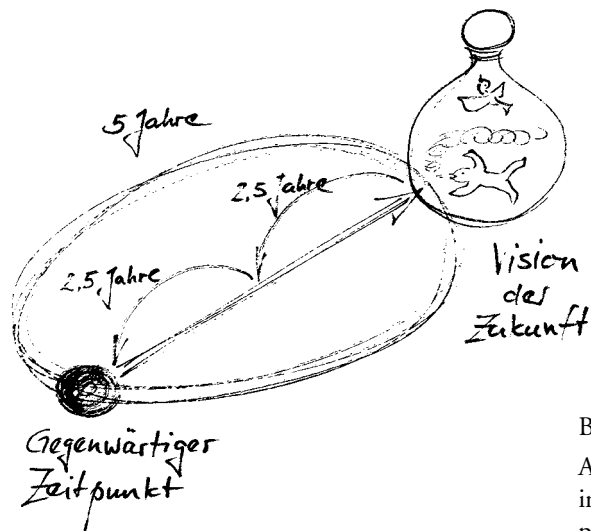 5 Jahre
2,5 Jahre
2,5 Jahre
Vision
der
Zukunft
Gegenwärtiger
Zeitpunkt